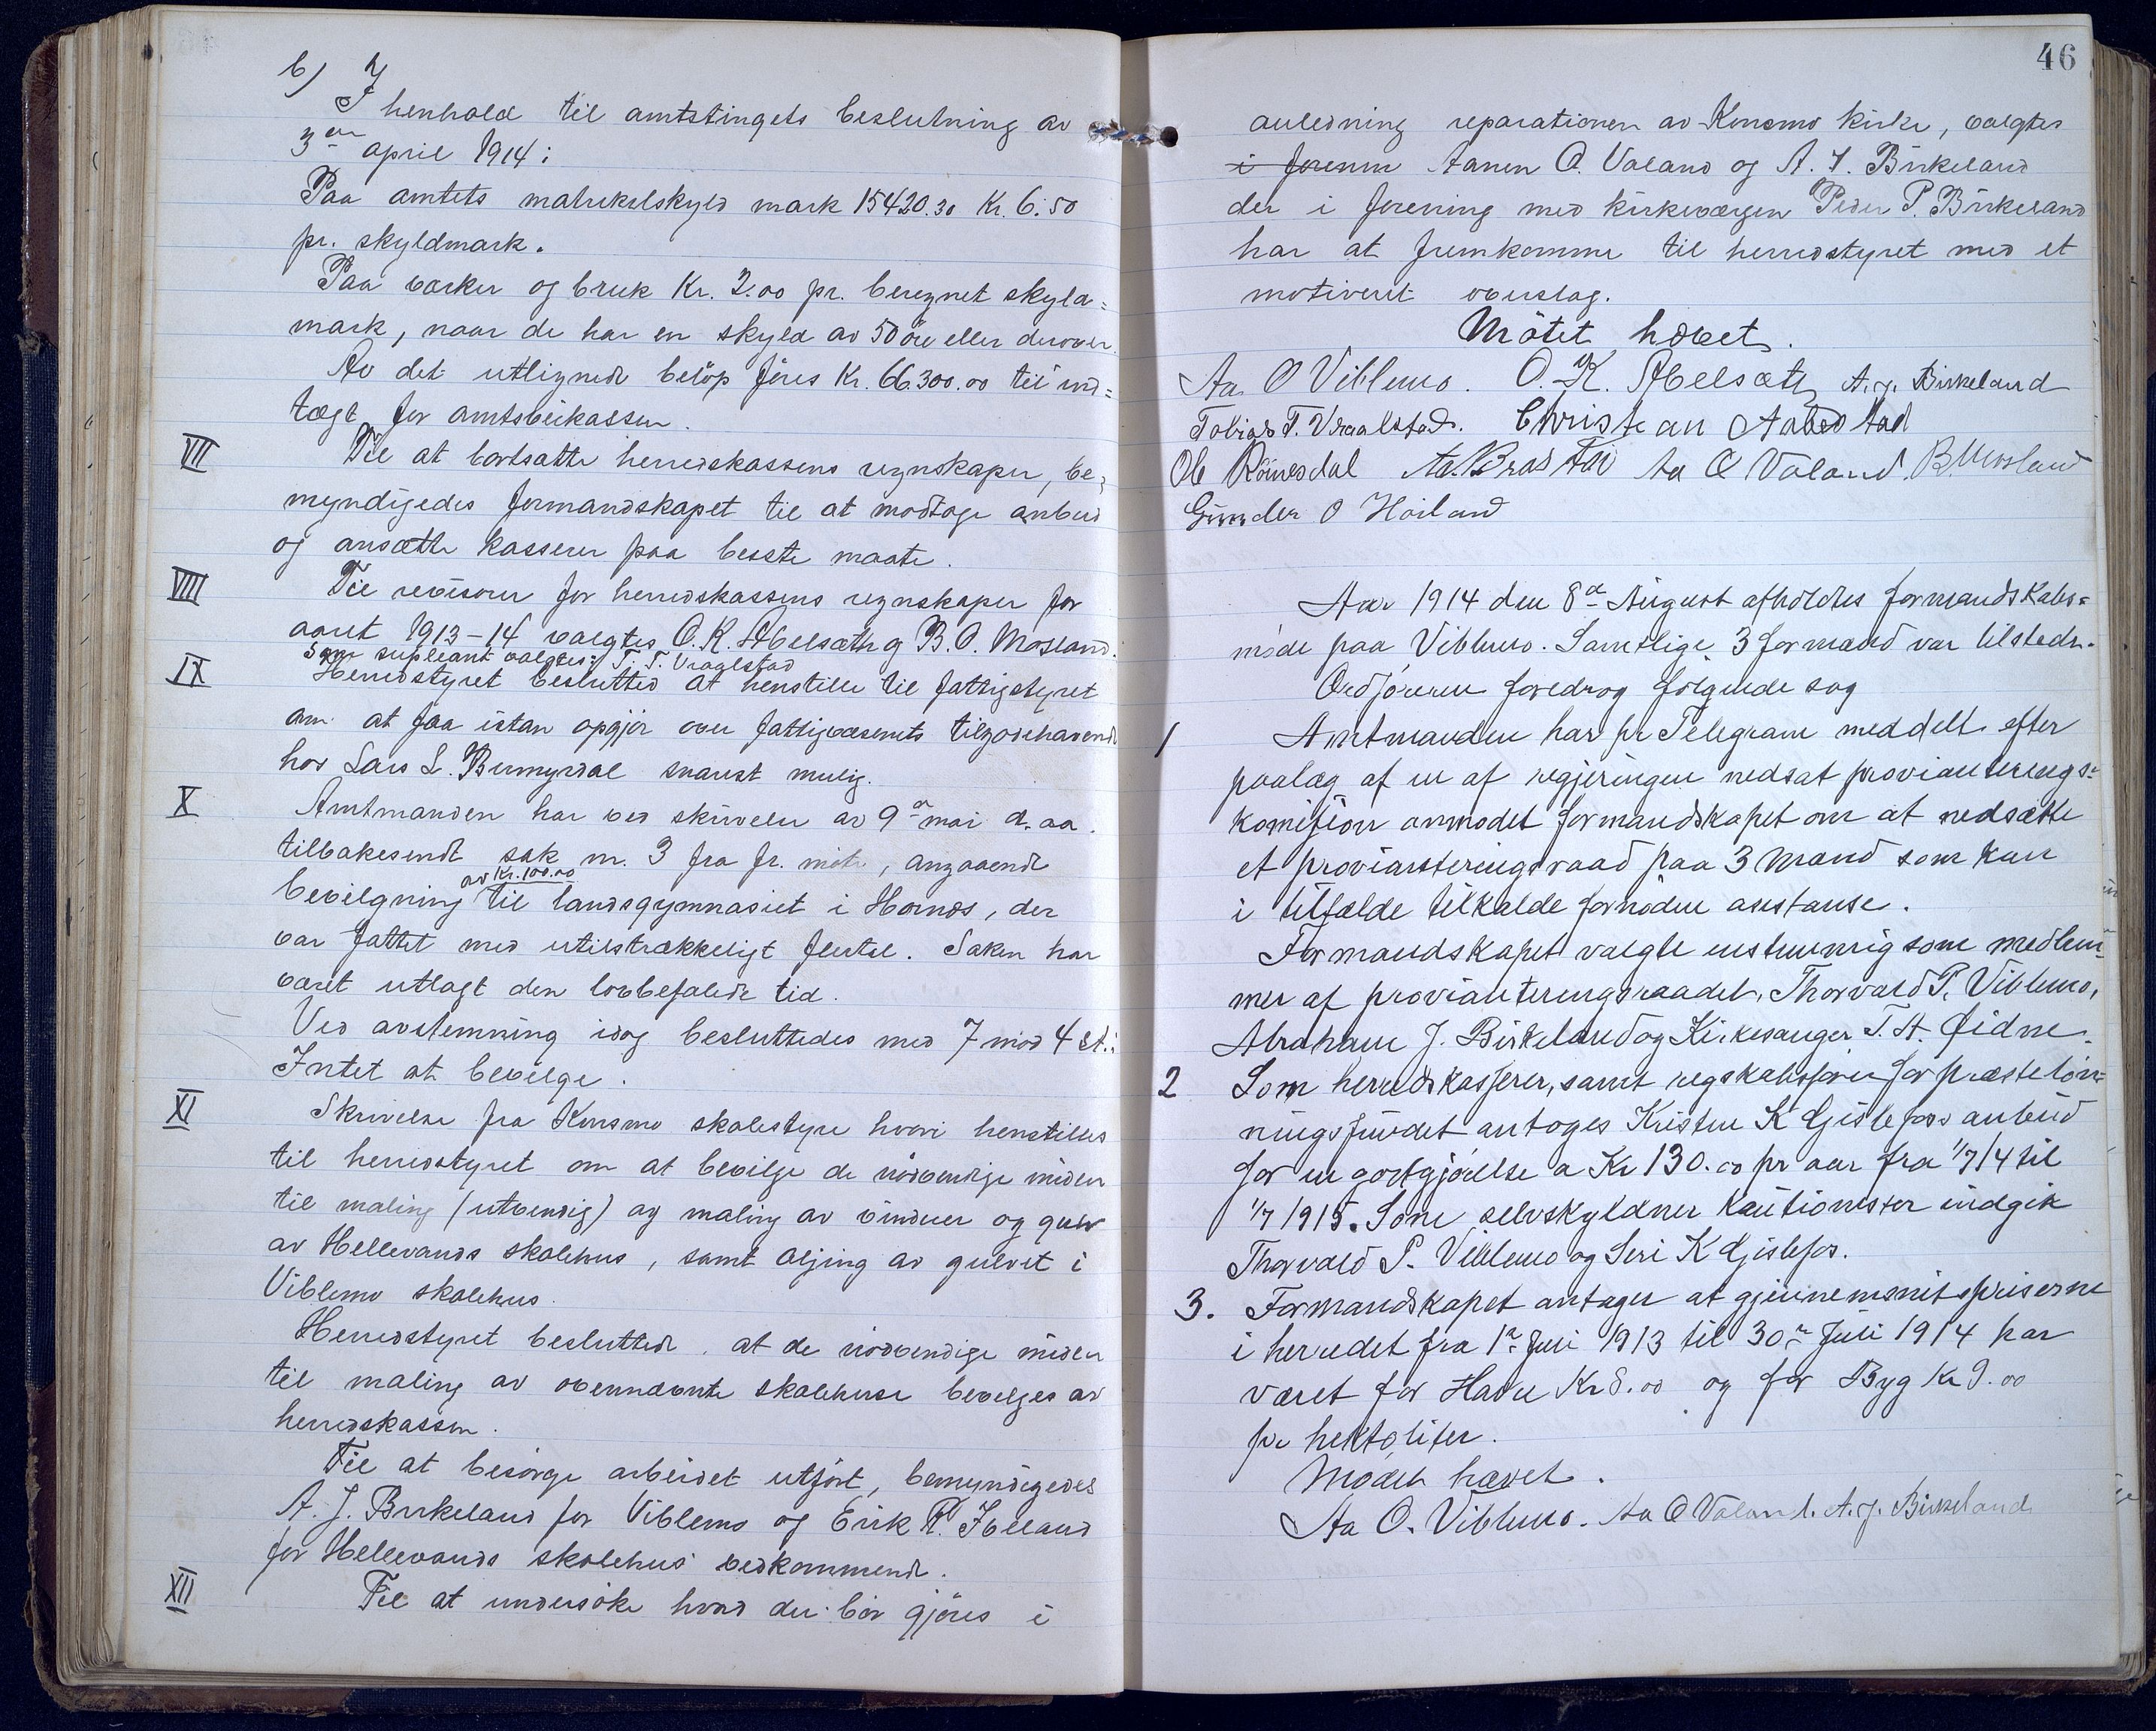 b) I henhold til amtstingets beslutning av
3die april 1914:
Paa amtets matrikelskyld mark 15420.30 Kr. 6.50
pr. skyldmark.
Paa værker og bruk Kr. 2.00 pr. beregnet skyld=
mark, naar de har en skyld av 50 øre eller derover.
Av det utlignede beløp føres Kr. 66.300.00 til ind=
tægt for amtsveikassen.
VII Til at bortsætte herredskassens regnskaper, be=
myndigedes formandskapet til at modtage anbud
og ansætte kasserer paa beste maate.
VIII Til revisorer for herredskassens regnskaper for
aaret 1913-14 valgtes O. K. Abelsæth og B. O. Mosland.
Som supleant valgtes: T. T. Vraalstad
IX Herredstyret besluttet at henstille til fattigstyret
om at faa istan opgjør over fattigvæsenets tilgodehavende
hos Lars L. snarest mulig.
X Amtmanden har ved skrivelse av 9de mai d. aa.
tilbakesendt sak nr. 3 fra fr. møte, angaaende
av Kr. 100.00
bevilgning til landsgymnasiet i Hornes, der
var fattet med utilstrækkeligt flertal. Saken har
været utlagt den lovbefalede tid.
Ved avstemning idag besluttedes med 7 mod 4 st.:
Intet at bevilge.
XI Skrivelse fra Konsmo skolestyre hvori henstilles
til herredstyret om at bevilge de nødvendige midler
til maling (utvendig) og maling av vinduer og gulv
av Hellevands skolehus, samt oljing av gulvet i
Viblemo skolehus.
Herredstyret besluttede at de nødvendige midler
til maling av ovennævnte skolehuse bevilges av
herredskassen.
Til at besørge arbeidet utført, bemyndigedes
A. J. Birkeland for Viblemo og Erik R. Helland
for Hellevands skolehus vedkommende.
XII Til at undersøke hvad der bør gjøres i
46
anledning reparationen av Konsmo kirke, valgtes
i forenin Aanen O. Valand og A. J. Birkeland
der i forening med kirkevergen Peder P. Birkeland
har at fremkomme til herredstyret med et
motivert overslag.
Møtet hævet.
Aa. O Viblemo. O. K. Abelsæth A. J. Birkeland
Tobias T. Vraalstad. Christian Aabestad
Ole Røinesdal Aa. Aa O Valand. B. Mosland
Gunder O Høiland
Aar 1914 den 8de August afholdtes formandskabs=
møde paa Viblemo. Samtlige 3 formænd var tilstede.
Ordføreren foredrog følgende sag
1 Amtmanden har pr Telegram meddelt efter
paalæg af en af regjeringen nedsat provianterings=
komission anmodet formandskapet om at nedsætte
et provianteringsraad paa 3 mand som kan
i tilfælde tilkalde fornøden asistanse.
Formandskapet valgte enstemmig som medlem=
mer af provianteringsraadet, Thorvald P. Viblemo,
Abraham J. Birkeland og Kirkesanger T. A. Øidne.
2 Som herredskasserer, samt regskabsfører for præsteløn=
ningsfondet antoges Kristen K Gislefos anbud
for en godtgjørelse a Kr 130.00 pr aar fra 1/7 14 til
1/7 1915. Som selvskyldner kautionister indgik
Thorvald P. Viblemo og Seri K Gislefos.
3. Formandskapet antager at gjennemsnitspriserne
i herredet fra 1de Juli 1913 til 30de Juli 1914 har
været for Havre Kr 8.00 og for Byg Kr 9.00
pr hektoliter.
Mødet hævet.
Aa O. Viblemo. Aa O Valand. A. J. Birkeland